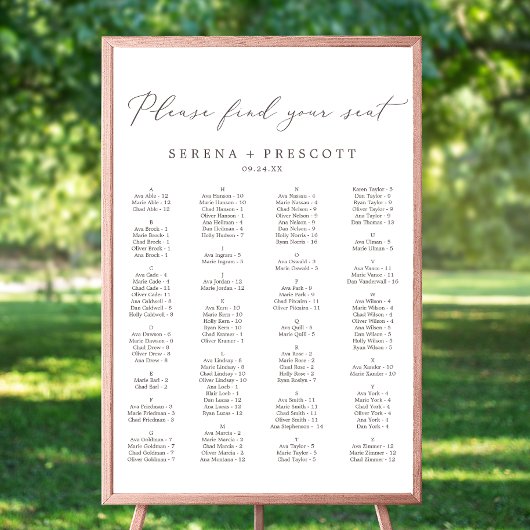 Please find your seat
SERENA + PRESCOTT
09.24.XX
A
Ava Able - 12
Marie Able - 12
Chad Able - 12
B
Ava Brock - 1
Marie Brock - 1
Chad Brock - 1
Oliver Brock - 1
Ana Brock - 1
C
Ava Cade - 11
Marie Cade - 11
Chad Cade - 11
Oliver Cade - 11
Ana Caldwell - 8
Dan Caldwell - 8
Holly Caldwell - 8
D
Ava Dawson - 6
Marie Dawson - 6
Chad Drew - 8
Oliver Drew - 8
Ana Drew - 8
E
Ava Earl - 2
Marie Earl - 2
F
Ava Friedman - 3
Marie Friedman - 3
Chad Friedman - 3
G
Ava Goldman - 7
Marie Goldman - 7
Chad Goldman - 7
Oliver Goldman - 7
H
Ava Hanson - 10
Marie Hanson - 10
Chad Hanson - 10
Oliver Hanson - 10
Ana Heilman - 4
Dan Heilman - 4
Holly Hudson - 7
I
Ava Ingram - 5
Marie Ingram - 5
J
Ava Jordan - 12
Marie Jordan - 12
K
Ava Kern - 10
Marie Kern - 10
Holly Kern - 10
Ryan Kern - 10
Chad Kramer - 1
Oliver Kramer - 1
L
Ava Lindsay - 6
Marie Lindsay - 6
Chad Lindsay - 6
Oliver Lindsay - 6
Ana Loeb - 1
Blair Loeb - 1
Dan Lucas - 12
Holly Lucas - 12
Ryan Lucas - 12
M
Ava Marcia - 2
Marie Marcia - 2
Chad Marcia - 2
Oliver Marcia - 2
Ana Montana - 12
N
Ava Nassau - 4
Marie Nassau - 4
Chad Nelson - 9
Oliver Nelson - 9
Ana Nelson - 9
Dan Nelson - 9
Holly Norris - 16
Ryan Norris - 16
O
Ava Oswald - 3
Marie Oswald - 3
P
Ava Park - 9
Marie Park - 9
Chad Piceira - 11
Oliver Piceira - 11
Q
Ava Quill - 5
Marie Quill - 5
R
Ava Rose - 2
Marie Rose - 2
Chad Rose - 2
Holly Rose - 2
Ryan Roslyn - 7
S
Ava Smith - 11
Marie Smith - 11
Chad Smith - 11
Oliver Smith - 11
Ana Stephenson - 14
T
Ava Taylor - 5
Marie Taylor - 5
Chad Taylor - 5
Karen Taylor - 5
Dan Taylor - 17
Ryan Taylor - 17
Oliver Taylor - 17
Ana Taylor - 17
Dan Thomas - 13
U
Ava Ulman - 5
Marie Ulman - 5
V
Ava Vance - 11
Marie Vance - 11
Dan Vanderwall - 16
W
Ava Wilson - 4
Marie Wilson - 4
Chad Wilson - 4
Oliver Wilson - 4
Ana Wilson - 4
Dan Wilson - 4
Holly Wilson - 4
Ryan Wilson - 4
X
Ava Xander - 10
Marie Xander - 10
Y
Ava York - 4
Marie York - 4
Chad York - 4
Oliver York - 4
Ana York - 4
Dan York - 4
Z
Ava Zimmer - 12
Marie Zimmer - 12
Chad Zimmer - 12